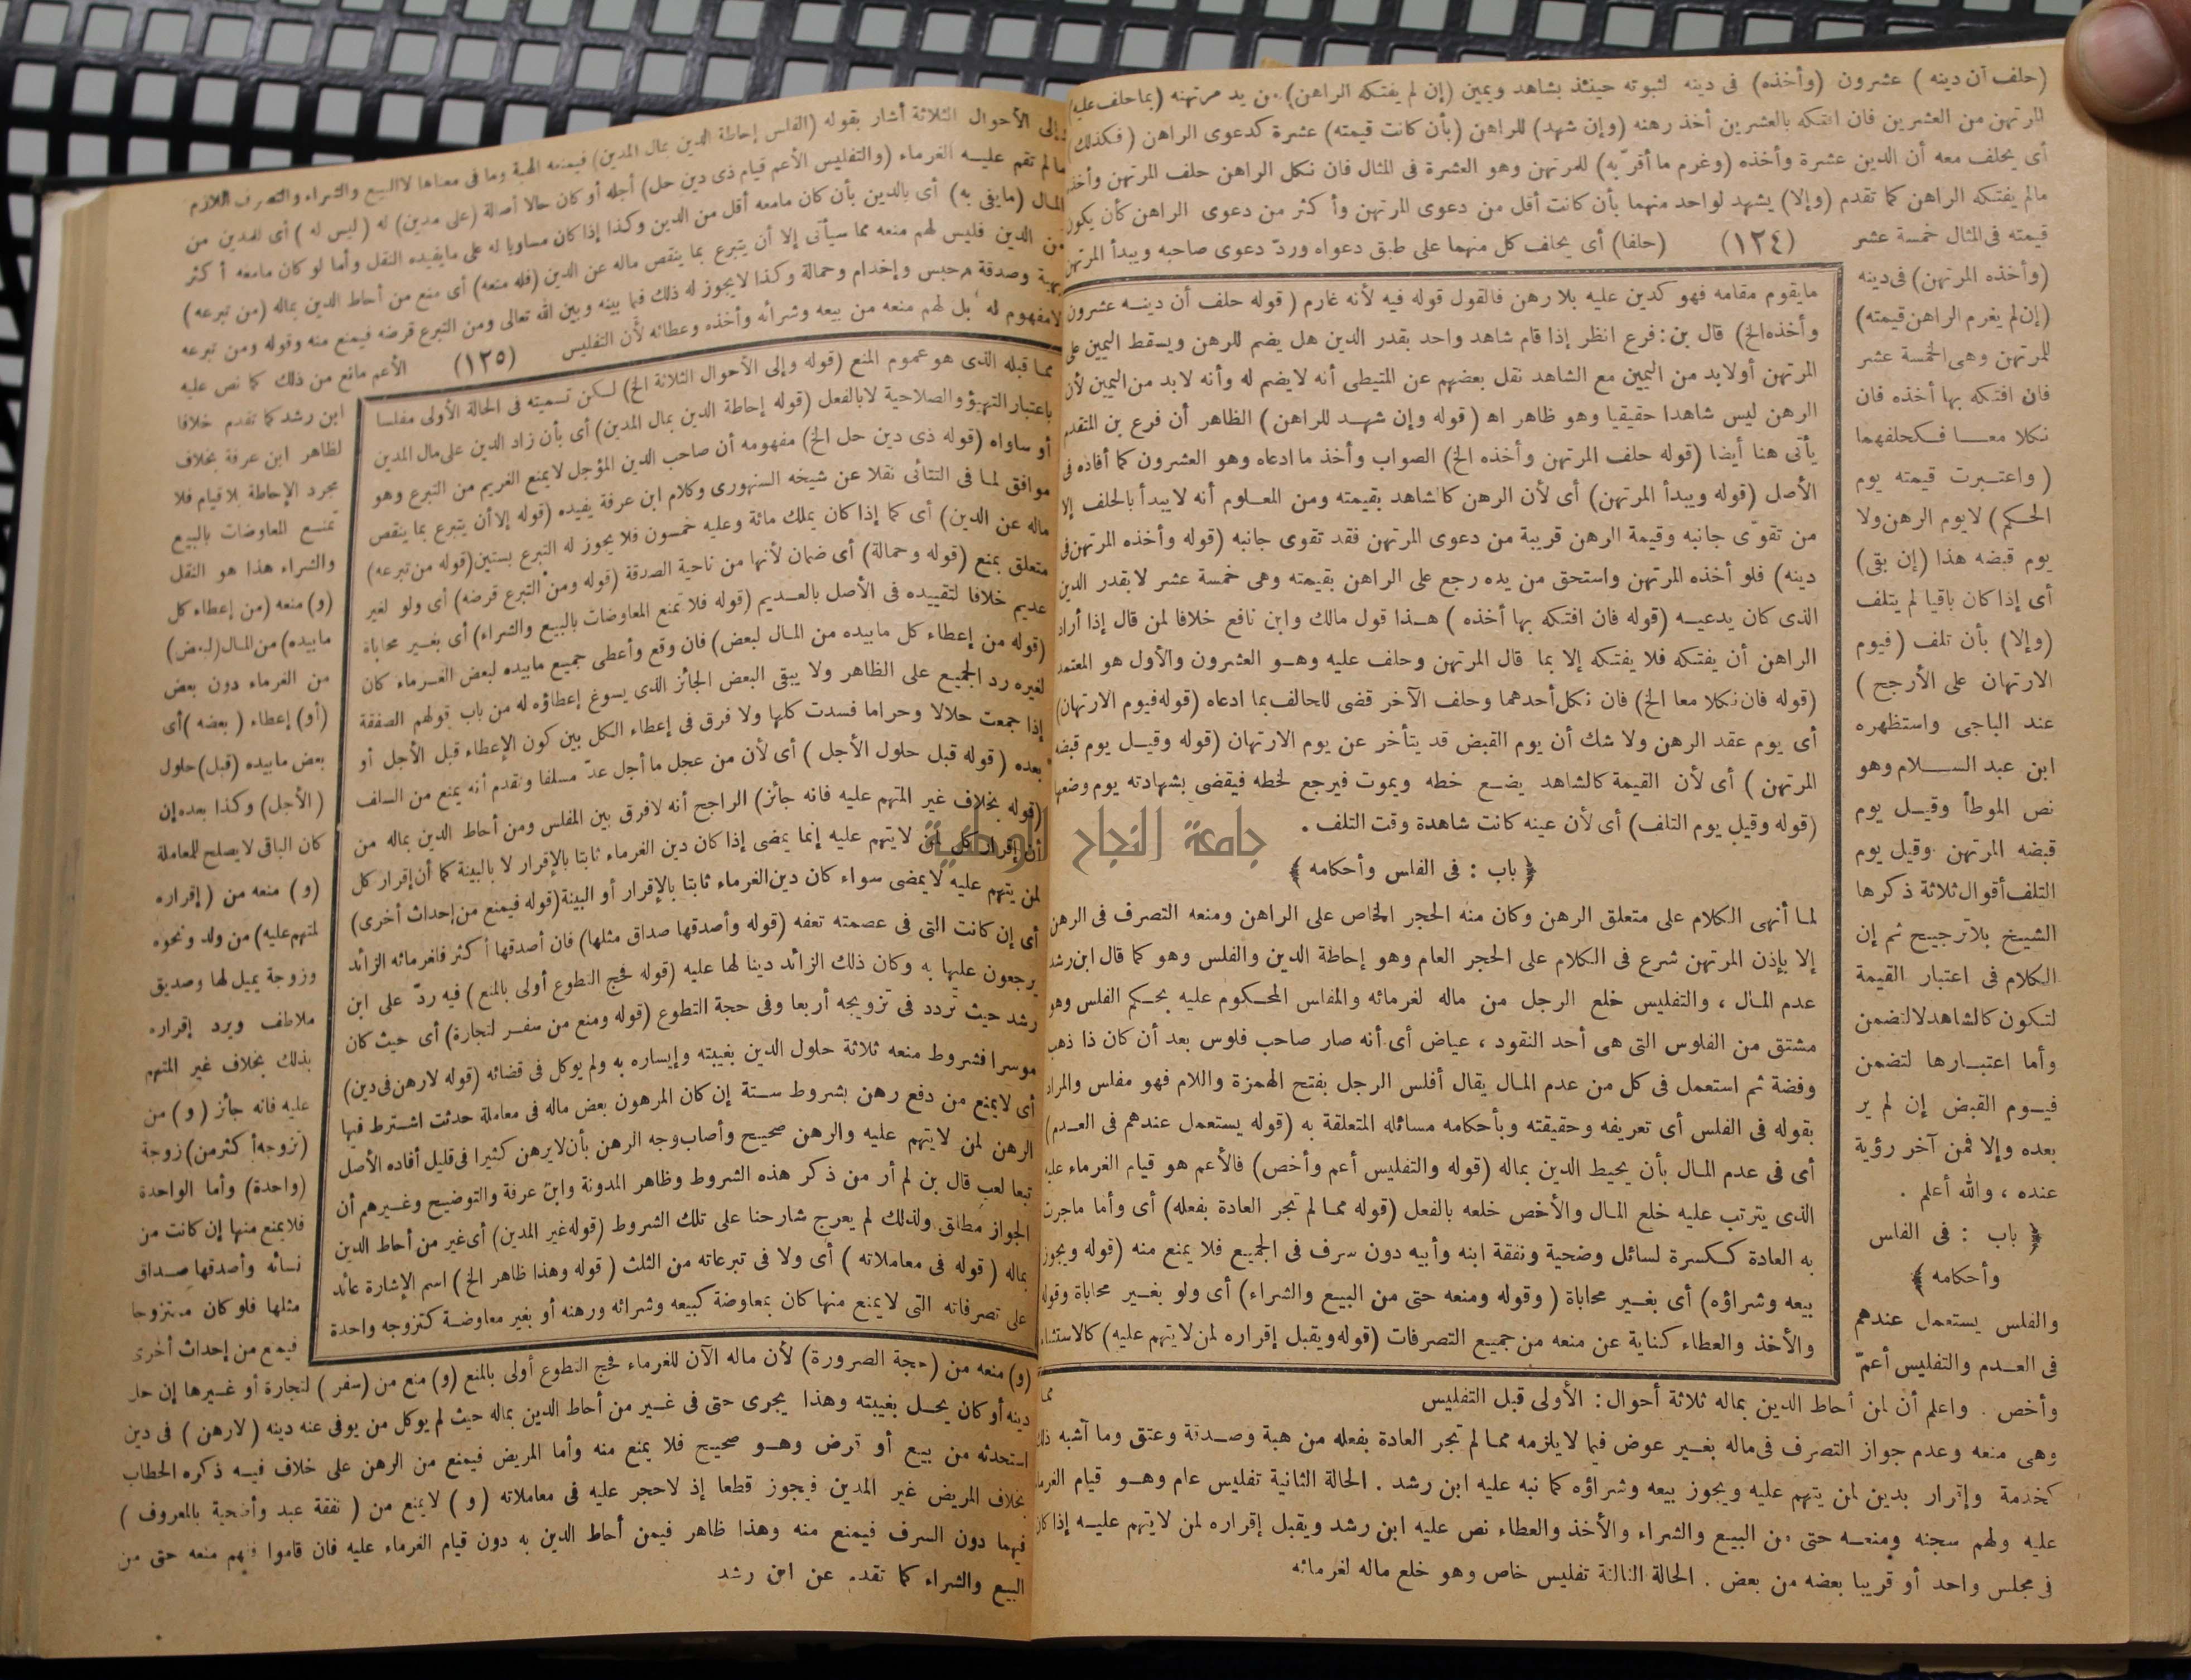 (حلف أن دينه) عشرون (وأخذه) فى دينه لثبوته حينئذ بشاهد ويمين (إن لم يفتكه الراهن) من يد مرتهنه (بما حلف عليه)
المرتهن من العشرين فان افتكه بالعشرين أخذ رهنه (وإن شهد) للراهن (بأن كانت قيمته) عشرة كدعوى الراهن (فكذلك)
أى يحلف معه أن الدين عشرة وأخذه (وغرم ما أقرّ به) للمرتهن وهو العشرة فى المثال فان نكل الراهن حلف المرتهن وأخذه
مالم يفتكه الراهن كما تقدم (وإلا) يشهد لواحد منهما بأن كانت أقل من دعوى المرتهن وأكثر من دعوى الراهن كأن يكون
قيمته فى المثال خمسة عشر (١٢٤) (حلفا) أى يحلف كل منهما على طبق دعواه وردّ دعوى صاحبه ويبدأ المرتهن
(وأخذه المرتهن) فى دينه
(إن لم يغرم الراهن قيمته)
للمرتهن وهى الخمسة عشر
فان افتكه بها أخذه فان
نكلا معا فكحلفهما
(واعتبرت قيمته يوم
الحكم) لا يوم الرهن ولا
يوم قبضه هذا (إن بقى)
أى إذا كان باقيا لم يتلف
(وإلا) بأن تلف (فيوم
الارتهان على الأرجح)
عند الباجى واستظهره
ابن عبد السلام وهو
نص الموطأ وقيل يوم
قبضه المرتهن وقيل يوم
التلف أقوال ثلاثة ذكرها
الشيخ بلا ترجيح ثم إن
الكلام فى اعتبار القيمة
لتكون كالشاهد لا لتضمن
وأما اعتبارها لتضمن
فيوم القبض إن لم ير
بعده وإلا فمن آخر رؤية
عنده ، والله أعلم .
﴿ باب : فى الفلس
وأحكامه ﴾
والفلس يستعمل عندهم
فى العدم والتفليس أعمّ
وأخص . واعلم أن لمن أحاط الدين بماله ثلاثة أحوال : الأولى قبل التفليس
وهى منعه وعدم جواز التصرف فى ماله بغير عوض فيما لا يلزمه مما لم تجر العادة بفعله من هبة وصدقة وعتق وما أشبه ذلك
كخدمة وإقرار بدين لمن يتهم عليه ويجوز بيعه وشراؤه كما نبه عليه ابن رشد . الحالة الثانية تفليس عام وهو قيام الغرماء
عليه ولهم سجنه ومنعه حتى من البيع والشراء والأخذ والعطاء نص عليه ابن رشد ويقبل إقراره لمن لا يتهم عليه إذا كان
فى مجلس واحد أو قريبا بعضه من بعض . الحالة الثالثة تفليس خاص وهو خلع ماله لغرمائه
ما يقوم مقامه فهو كدين عليه بلا رهن فالقول قوله فيه لأنه غارم (قوله حلف أن دينه عشرون
وأخذه الخ) قال بن : فرع انظر إذا قام شاهد واحد بقدر الدين هل يضم للرهن ويسقط اليمين على
المرتهن أولا بد من اليمين مع الشاهد نقل بعضهم عن المتيطى أنه لا يضم له وأنه لا بد من اليمين لأن
الرهن ليس شاهدا حقيقيا وهو ظاهر اه (قوله وإن شهد للراهن) الظاهر أن فرع بن المتقدم
يأتى هنا أيضا (قوله حلف المرتهن وأخذه الخ) الصواب وأخذ ما ادعاه وهو العشرون كما أفاده فى
الأصل (قوله ويبدأ المرتهن) أى لأن الرهن كالشاهد بقيمته ومن المعلوم أنه لا يبدأ بالحلف إلا
من تقوّى جانبه وقيمة الرهن قريبة من دعوى المرتهن فقد تقوى جانبه (قوله وأخذه المرتهن فى
دينه) فلو أخذه المرتهن واستحق من يده رجع على الراهن بقيمته وهى خمسة عشر لا بقدر الدين
الذى كان يدعيه (قوله فان افتكه بها أخذه) هذا قول مالك وابن نافع خلافا لمن قال إذا أراد
الراهن أن يفتكه فلا يفتكه إلا بما قال المرتهن وحلف عليه وهو العشرون والأول هو المعتمد
(قوله فان نكلا معا الخ) فان نكل أحدهما وحلف الآخر قضى للحالف بما ادعاه (قوله فيوم الارتهان)
أى يوم عقد الرهن ولا شك أن يوم القبض قد يتأخر عن يوم الارتهان (قوله وقيل يوم قبضه
المرتهن) أى لأن القيمة كالشاهد يضع خطه ويموت فيرجع لخطه فيقضى بشهادته يوم وضعها
(قوله وقيل يوم التلف) أى لأن عينه كانت شاهدة وقت التلف .
﴿ باب : فى الفلس وأحكامه ﴾
لما أنهى الكلام على متعلق الرهن وكان منه الحجر الخاص على الراهن ومنعه التصرف فى الرهن
إلا بإذن المرتهن شرع فى الكلام على الحجر العام وهو إحاطة الدين والفلس وهو كما قال ابن رشد
عدم المال ، والتفليس خلع الرجل من ماله لغرمائه والمفلس المحكوم عليه بحكم الفلس وهو
مشتق من الفلوس التى هى أحد النقود ، عياض أى أنه صار صاحب فلوس بعد أن كان ذا ذهب
وفضة ثم استعمل فى كل من عدم المال يقال أفلس الرجل بفتح الهمزة واللام فهو مفلس والمراد
بقوله فى الفلس أى تعريفه وحقيقته وبأحكامه مسائله المتعلقة به (قوله يستعمل عندهم فى العدم)
أى فى عدم المال بأن يحيط الدين بماله (قوله والتفليس أعم وأخص) فالأعم هو قيام الغرماء عليه
الذى يترتب عليه خلع المال والأخص خلعه بالفعل (قوله مما لم تجر العادة بفعله) أى وأما ماجرت
به العادة ككسرة لسائل وضحية ونفقة ابنه وأبيه دون سرف فى الجميع فلا يمنع منه (قوله ويجوز
بيعه وشراؤه) أى بغير محاباة (وقوله ومنعه حتى من البيع والشراء) أى ولو بغير محاباة وقوله
والأخذ والعطاء كناية عن منعه من جميع التصرفات (قوله ويقبل إقراره لمن لا يتهم عليه) كالاستثناء
مما
وإلى الأحوال الثلاثة أشار بقوله (الفلس إحاطة الدين بمال المدين) فيمنعه الهبة وما فى معناها لا البيع والشراء والتصرف اللازم
مالم تقم عليه الغرماء (والتفليس الأعم قيام ذى دين حل) أجله أو كان حالا أصالة (على مدين) له (ليس له) أى للمدين من
المال (مايفى به) أى بالدين بأن كان مامعه أقل من الدين وكذا إذا كان مساويا له على مايفيده النقل وأما لو كان مامعه أكثر
من الدين فليس لهم منعه مما سيأتى إلا أن يتبرع بما ينقص ماله عن الدين (فله منعه) أى منع من أحاط الدين بماله (من تبرعه)
بهبة وصدقة وحبس وإخدام وحمالة وكذا لا يجوز له ذلك فيما بينه وبين الله تعالى ومن التبرع قرضه فيمنع منه وقوله ومن تبرعه
لا مفهوم له بل لهم منعه من بيعه وشرائه وأخذه وعطائه لأن التفليس (١٢٥) الأعم مانع من ذلك كما نص عليه
ابن رشد كما تقدم خلافا
لظاهر ابن عرفة بخلاف
مجرد الإحاطة بلا قيام فلا
تمنع المعاوضات بالبيع
والشراء هذا هو النقل
(و) منعه (من إعطاء كل
ما بيده) من المال (لبعض)
من الغرماء دون بعض
(أو) إعطاء (بعضه) أى
بعض ما بيده (قبل) حلول
(الأجل) وكذا بعده إن
كان الباقى لا يصلح للمعاملة
(و) منعه من (إقراره
لمتهم عليه) من ولد ونحوه
وزوجة يميل لها وصديق
ملاطف ويرد إقراره
بذلك بخلاف غير المتهم
عليه فانه جائز (و) من
(تزوجه أكثر من) زوجة
(واحدة) وأما الواحدة
فلا يمنع منها إن كانت من
نسائه وأصدقها صداق
مثلها فلو كان متزوجا
فيمنع من إحداث أخرى
(و) منعه من (حجة الصرورة) لأن ماله الآن للغرماء فحج التطوع أولى بالمنع (و) منع من (سفر) لتجارة أو غيرها إن حل
دينه أو كان يحل بغيبته وهذا يجرى حتى فى غير من أحاط الدين بماله حيث لم يوكل من يوفى عنه دينه (لارهن) فى دين
استحدثه من بيع أو قرض وهو صحيح فلا يمنع منه وأما المريض فيمنع من الرهن على خلاف فيه ذكره الحطاب
بخلاف المريض غير المدين فيجوز قطعا إذ لاحجر عليه فى معاملاته (و) لا يمنع من (نفقة عبد وأضحية بالمعروف)
فيهما دون السرف فيمنع منه وهذا ظاهر فيمن أحاط الدين به دون قيام الغرماء عليه فان قاموا فلهم منعه حتى من
البيع والشراء كما تقدم عن ابن رشد
مما قبله الذى هو عموم المنع (قوله وإلى الأحوال الثلاثة الخ) لكن تسميته فى الحالة الأولى مفلسا
باعتبار التهيؤ والصلاحية لا بالفعل (قوله إحاطة الدين بمال المدين) أى بأن زاد الدين على مال المدين
أو ساواه (قوله ذى دين حل الخ) مفهومه أن صاحب الدين المؤجل لا يمنع الغريم من التبرع وهو
موافق لما فى التتائى نقلا عن شيخه السنهورى وكلام ابن عرفة يفيده (قوله إلا أن يتبرع بما ينقص
ماله عن الدين) أى كما إذا كان يملك مائة وعليه خمسون فلا يجوز له التبرع بستين (قوله من تبرعه)
متعلق بمنع (قوله وحمالة) أى ضمان لأنها من ناحية الصدقة (قوله ومن التبرع قرضه) أى ولو لغير
عديم خلافا لتقييده فى الأصل بالعديم (قوله فلا تمنع المعاوضات بالبيع والشراء) أى بغير محاباة
(قوله من إعطاء كل مابيده من المال لبعض) فان وقع وأعطى جميع مابيده لبعض الغرماء كان
لغيره رد الجميع على الظاهر ولا يبقى البعض الجائز الذى يسوغ إعطاؤه له من باب قولهم الصفقة
إذا جمعت حلالا وحراما فسدت كلها ولا فرق فى إعطاء الكل بين كون الإعطاء قبل الأجل أو
بعده (قوله قبل حلول الأجل) أى لأن من عجل ما أجل عدّ مسلفا وتقدم أنه يمنع من السلف
(قوله بخلاف غير المتهم عليه فانه جائز) الراجح أنه لافرق بين المفلس ومن أحاط الدين بماله من
أن إقرار كل لمن لا يتهم عليه إنما يمضى إذا كان دين الغرماء ثابتا بالإقرار لا بالبينة كما أن إقرار كل
لمن يتهم عليه لا يمضى سواء كان دين الغرماء ثابتا بالإقرار أو البينة (قوله فيمنع من إحداث أخرى)
أى إن كانت التى فى عصمته تعفه (قوله وأصدقها صداق مثلها) فان أصدقها أكثر فلغرمائه الزائد
يرجعون عليها به وكان ذلك الزائد دينا لها عليه (قوله فحج التطوع أولى بالمنع) فيه ردّ على ابن
رشد حيث تردد فى تزويجه أربعا وفى حجة التطوع (قوله ومنع من سفر لتجارة) أى حيث كان
موسرا فشروط منعه ثلاثة حلول الدين بغيبته وإيساره به ولم يوكل فى قضائه (قوله لارهن فى دين)
أى لا يمنع من دفع رهن بشروط ستة إن كان المرهون بعض ماله فى معاملة حدثت اشترط فيها
الرهن لمن لا يتهم عليه والرهن صحيح وأصاب وجه الرهن بأن لا يرهن كثيرا فى قليل أفاده الأصل
تبعا لعب قال بن لم أر من ذكر هذه الشروط وظاهر المدونة وابن عرفة والتوضيح وغيرهم أن
الجواز مطلق ولذلك لم يعرج شارحنا على تلك الشروط (قوله غير المدين) أى غير من أحاط الدين
بماله (قوله فى معاملاته) أى ولا فى تبرعاته من الثلث (قوله وهذا ظاهر الخ) اسم الإشارة عائد
على تصرفاته التى لا يمنع منها كان بمعاوضة كبيعه وشرائه ورهنه أو بغير معاوضة كتزوجه واحدة
جامعة النجاح الوطنية